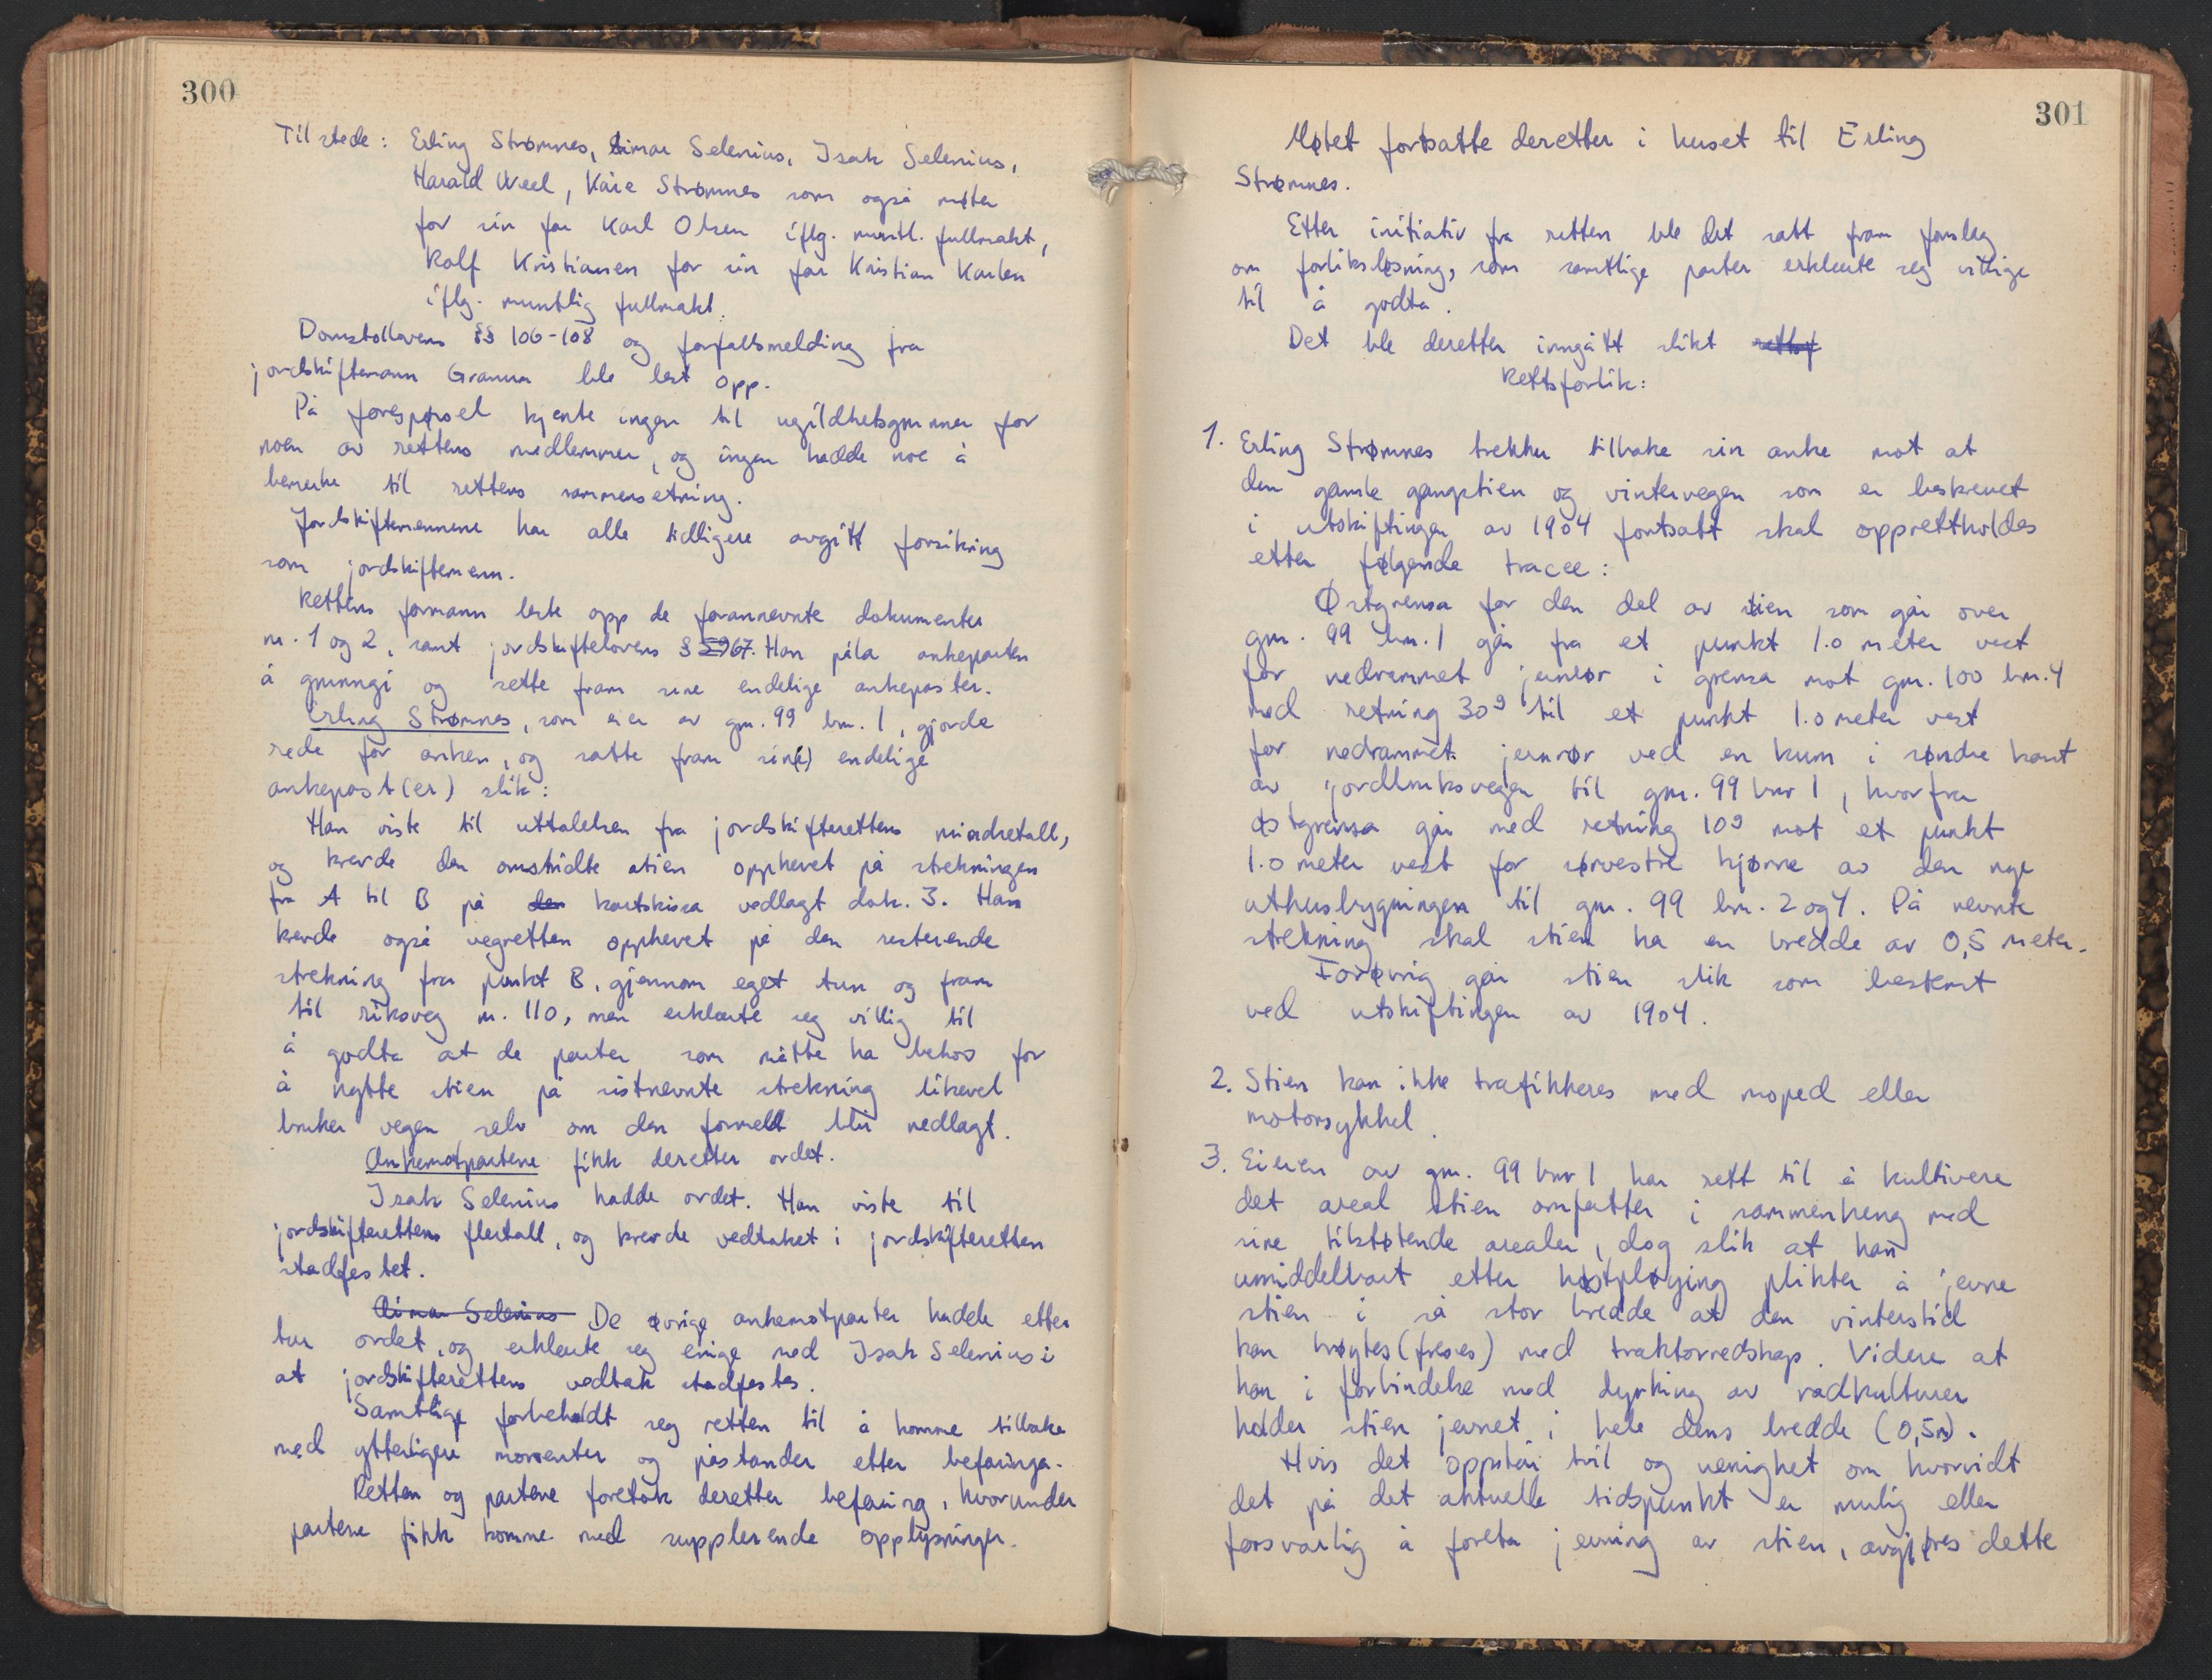 300
Til stede: Erling Strømnes, Einar Selenius, Isak Selenius,
Harald Weel, Kåre Strømnes som også møter
for sin far Karl Olsen iflg. muntl. fullmakt,
Rolf Kristiansen for sin far Kristian Karlsen
iflg. muntlig fullmakt.
Domstollovens §§ 106-108 og forfallsmelding fra
jordskiftemann Grannes ble lest opp.
På forespørsel kjente ingen til ugildhetsgrunner for
noen av rettens medlemmer, og ingen hadde noe å
bemerke til rettens sammensetning.
Jordskiftemennene har alle tidligere avgitt forsikring
som jordskiftemenn.
Rettens formann leste opp de forannevnte dokumenter
nr. 1 og 2, samt jordskiftelovens § 67. Han påla ankeparten
å grunngi og sette fram sine endelige ankeposter.
Erling Strømnes, som eier av gnr. 99 bnr. 1, gjorde
rede for anken, og satte fram sin(e) endelige
ankepost(er) slik:
Han viste til uttalelsen fra jordskifterettens mindretall,
og krevde den omstridte stien opphevet på strekningen
fra A til B på den kartskissa vedlagt dok. 3. Han
krevde også vegretten opphevet på den resterende
strekning fra punkt B, gjennom eget tun og fram
til riksveg nr. 110, men erklærte seg villig til
å godta at de parter som måtte ha behov for
å nytte stien på sistnevnte strekning likevel
bruker vegen selv om den formelt blir nedlagt.
Ankemotpartene fikk deretter ordet.
Isak Selenius hadde ordet. Han viste til
jordskifterettens flertall, og krevde vedtaket i jordskifteretten
stadfestet.
Einar Selenius De øvrige ankemotparter hadde etter
tur ordet, og erklærte seg enige med Isak Selenius i
at jordskifterettens vedtak stadfestes.
Samtlige forbeholdt seg retten til å komme tilbake
med ytterligere momenter og påstander etter befaringa.
Retten og partene foretok deretter befaring, hvorunder
partene fikk komme med supplerende opplysninger.
301
Møtet fortsatte deretter i huset til Erling
Strømnes.
Etter initiativ fra retten ble det satt fram forslag
om forliksløsning, som samtlige parter erklærte seg villige
til å godta.
Det ble deretter inngått slikt rettsf
Rettsforlik:
1. Erling Strømnes trekker tilbake sin anke mot at
den gamle gangstien og vintervegen som er beskrevet
i utskiftingen av 1904 fortsatt skal opprettholdes
etter følgende tracee:
Østgrensa for den del av stien som går over
gnr. 99 bnr. 1 går fra et punkt 1.0 meter vest
for nedrammet jernrør i grensa mot gnr. 100 bnr. 4
med retning 30g til et punkt 1.0 meter vest
for nedrammet jernrør ved en kum i søndre kant
av jordbruksvegen til gnr. 99 bnr 1, hvorfra
østgrensa går med retning 10g mot et punkt
1.0 meter vest for sørvestre hjørne av den nye
uthusbygningen til gnr. 99 bnr. 2 og 4. På nevnte
strekning skal stien ha en bredde av 0,5 meter.
Forøvrig går stien slik som beskrevet
ved utskiftingen av 1904.
2. Stien kan ikke trafikkeres med moped eller
motorsykkel.
3. Eieren av gnr. 99 bnr 1 har rett til å kultivere
det areal stien omfatter i sammenheng med
sine tilstøtende arealer, dog slik at han
umiddelbart etter høstpløying plikter å jevne
stien i så stor bredde at den vinterstid
kan brøytes (freses) med traktorredskap. Videre at
han i forbindelse med dyrking av radkulturer
holder stien jevnet i hele dens bredde (0,5m).
Hvis det oppstår tvil og uenighet om hvorvidt
det på det aktuelle tidspunkt er mulig eller
forsvarlig å foreta jevning av stien, avgjøres dette